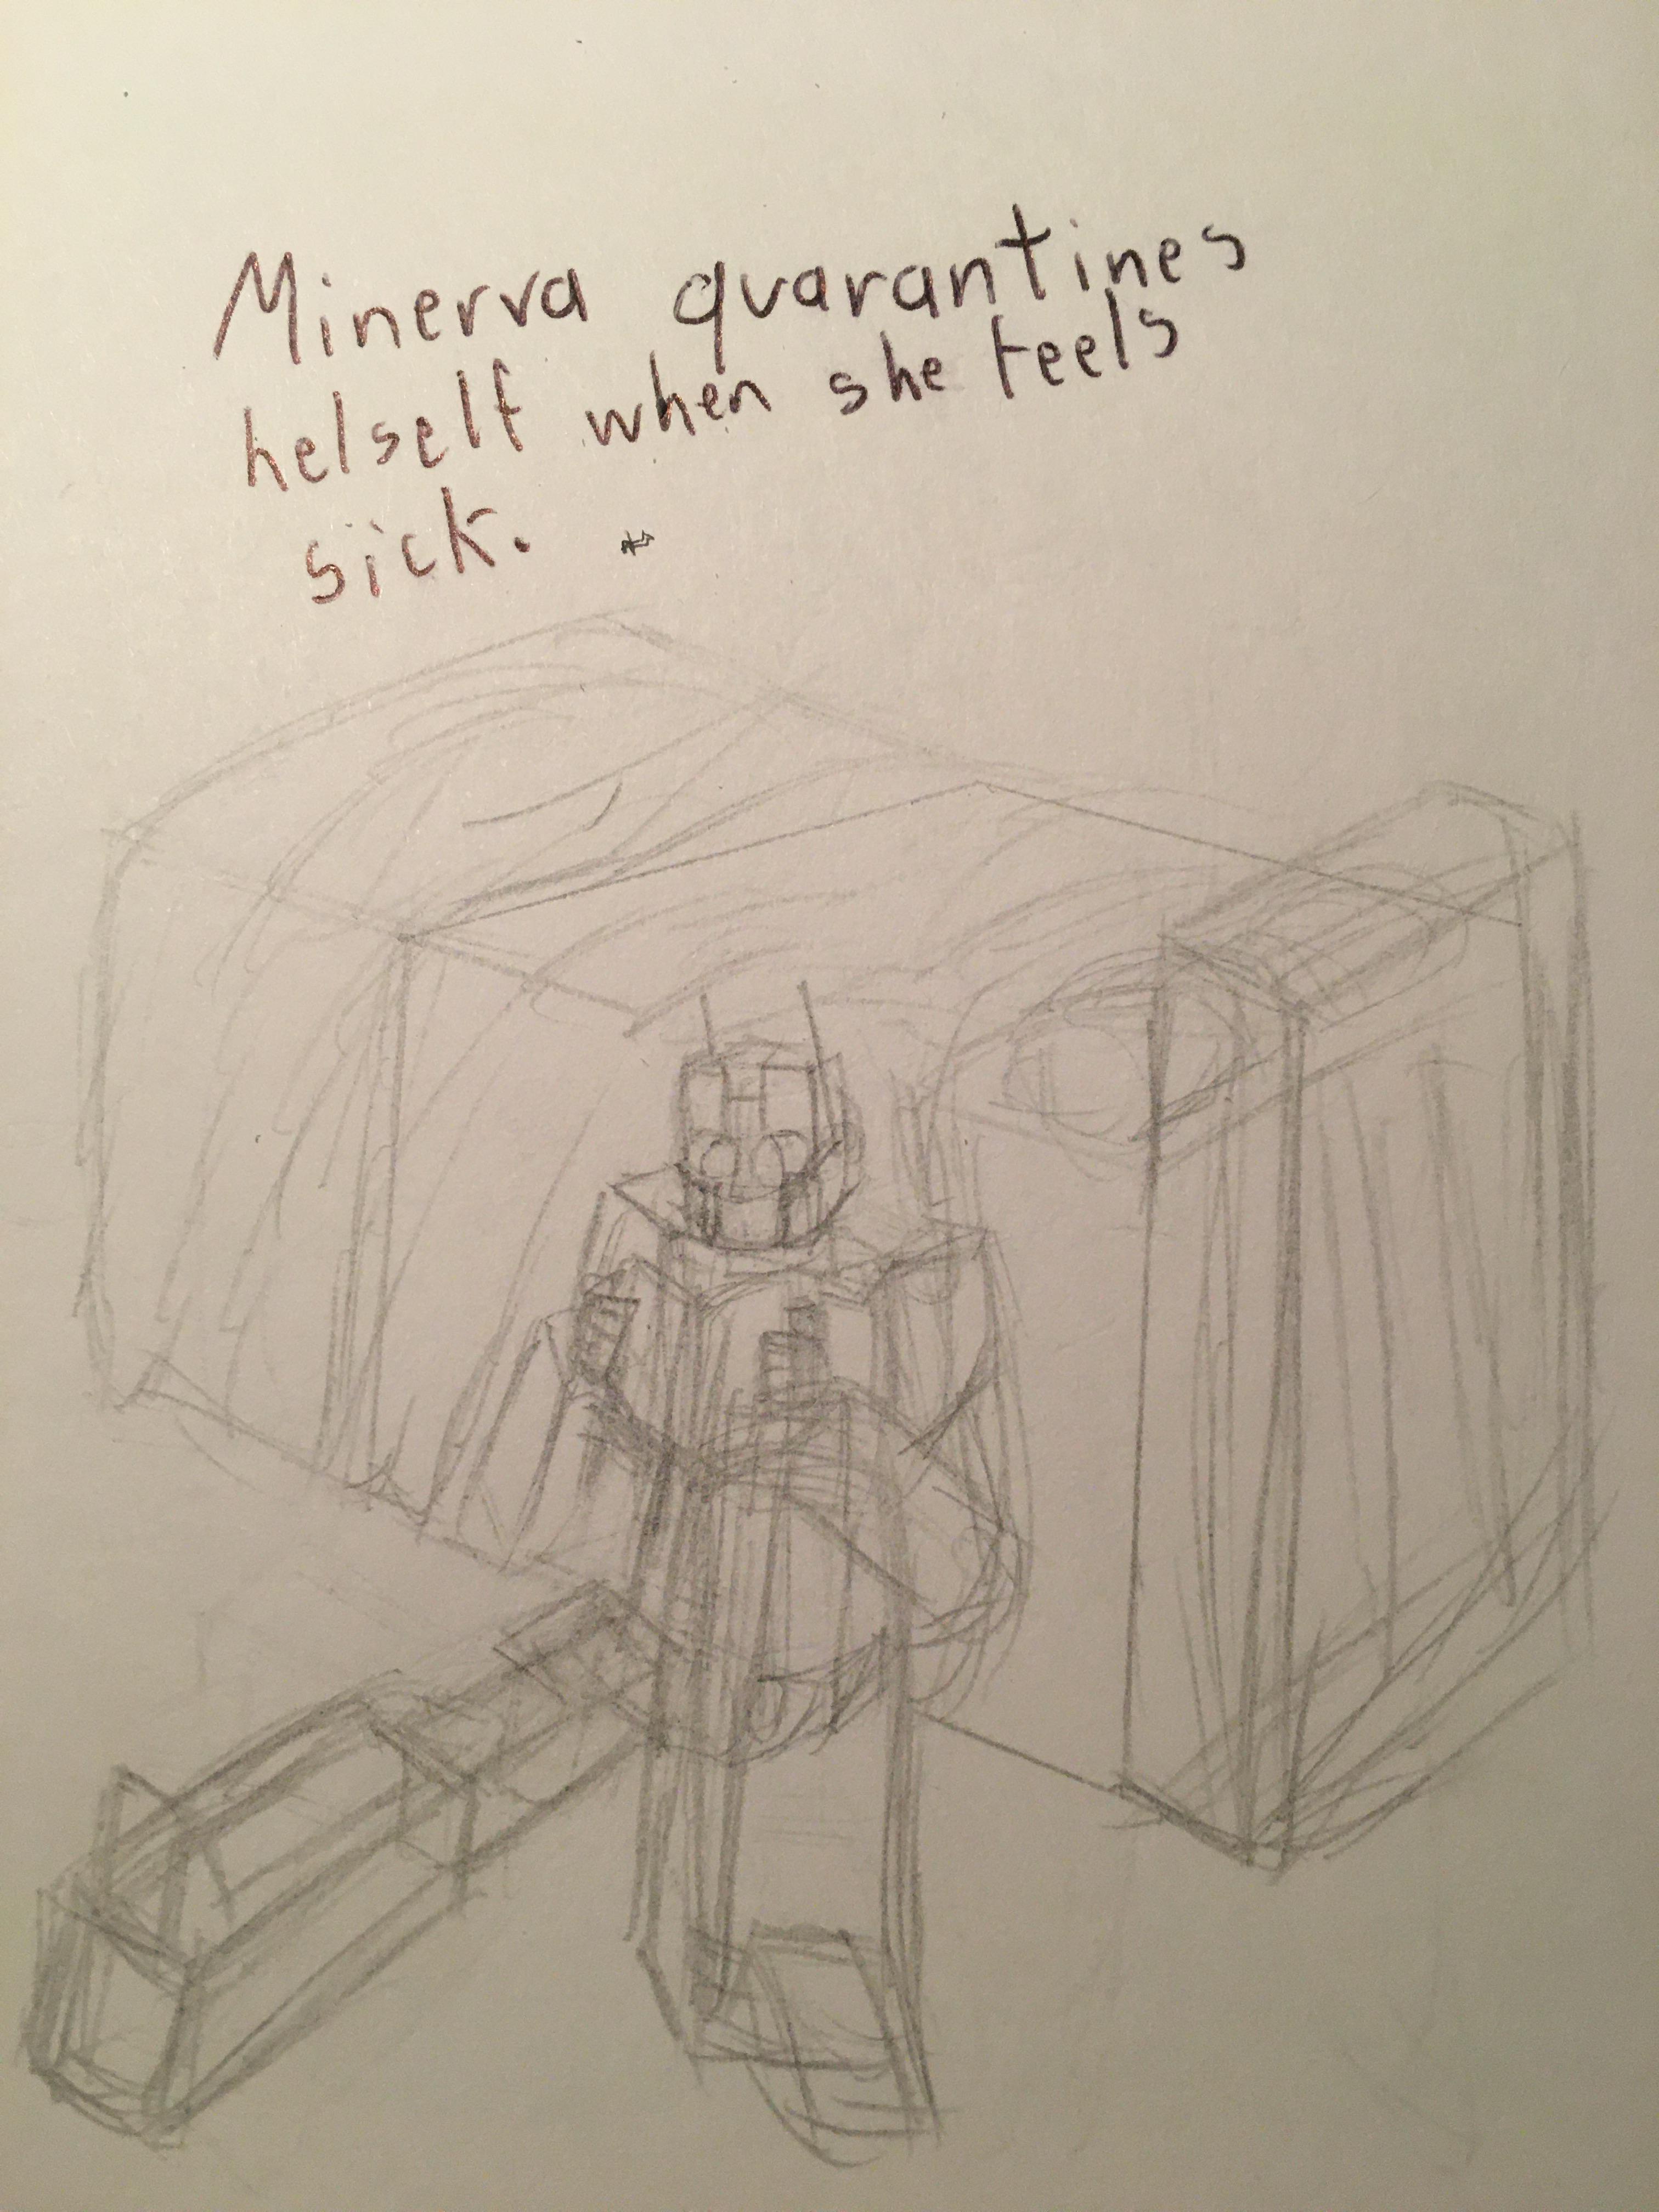 Minerva quarantines
helself when she feels
sick.